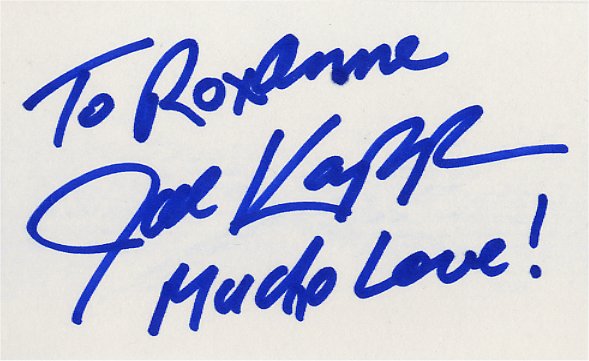 To Roxanne
Joe Kapp
Mucho Love!